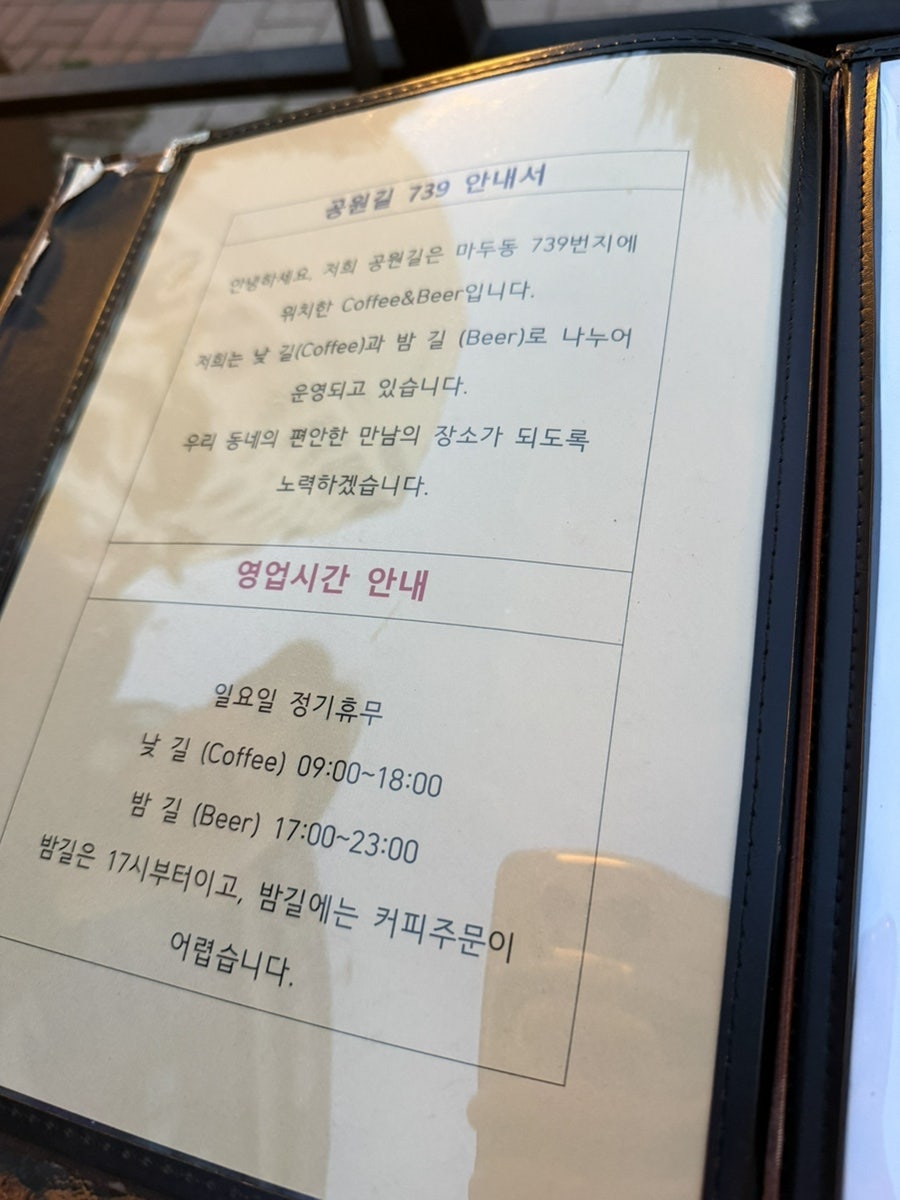 공원길 739 안내서
안녕하세요, 저희 공원길은 마두동 739번지에
위치한 Coffee&Beer입니다.
저희는 낮 길(Coffee)과 밤 길 (Beer)로 나누어
운영되고 있습니다.
우리 동네의 편안한 만남의 장소가 되도록
노력하겠습니다.
영업시간 안내
일요일 정기휴무
낮 길 (Coffee) 09:00~18:00
밤 길 (Beer) 17:00~23:00
밤길은 17시부터이고, 밤길에는 커피주문이
어렵습니다.